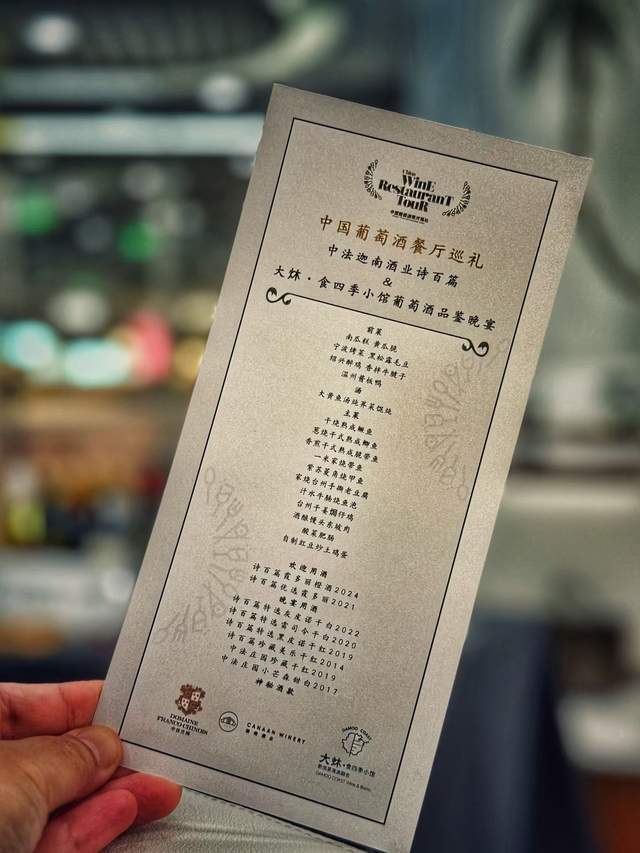 China
WinE
RestauranT
TouR
中国葡萄酒餐厅巡礼
中国葡萄酒餐厅巡礼
中法迦南酒业诗百篇
&
大炑·食四季小馆葡萄酒品鉴晚宴
前菜
南瓜糕 黄瓜脆
宁波烤菜 黑松露毛豆
绍兴醉鸡 香拌牛腱子
温州酱板鸭
汤
大黄鱼汤炖荠菜馄饨
主菜
干烧熟成鳜鱼
葱烧干式熟成鲫鱼
香煎干式熟成脆带鱼
一米家烧带鱼
紫苏菱角烧甲鱼
家烧台州手捣老豆腐
汁水牛肠烧鱼泡
台州干姜焗仔鸡
酒酿馒头东坡肉
酸菜肥肠
自制红豆炒土鸡蛋
欢迎用酒
诗百篇霞多丽橙酒2024
诗百篇优选霞多丽2021
晚宴用酒
诗百篇特选灰皮诺干白2022
诗百篇特选雷司令干白2020
诗百篇特选黑皮诺干红2019
诗百篇珍藏美乐干红2014
中法庄园珍藏干红2019
中法庄园小芒森甜白2017
神秘酒款
DOMAINE
FRANCO CHINOIS
中法庄园
CANAAN WINERY
迦南酒业
DAMOO COAST
大炑·食四季小馆
DAMOO COAST Wine & Bistro